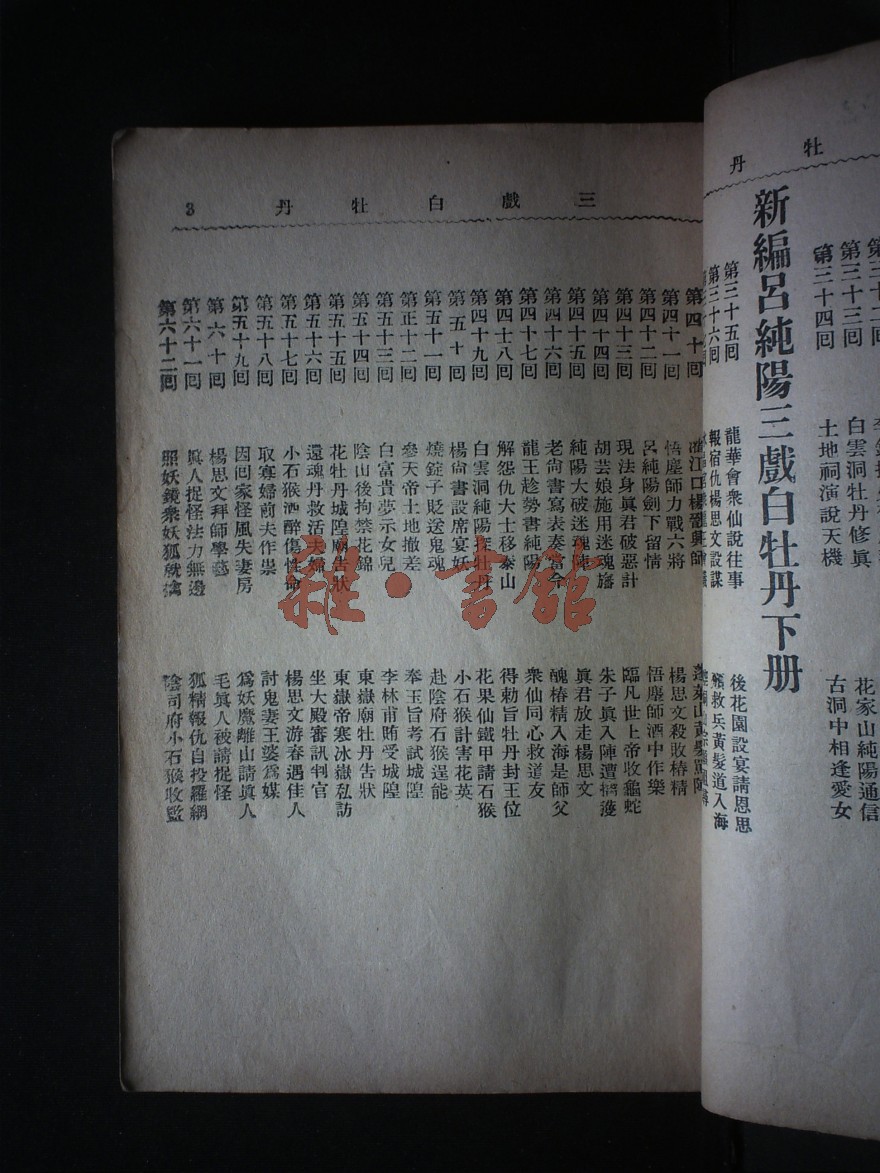 牡丹
第三十三回 白雲洞牡丹修眞 花家山純陽通信
第三十四回 土地祠演說天機 古洞中相逢愛女
新編呂純陽三戲白牡丹下册
第三十五回 龍華會衆仙說往事 後花園設宴請恩思
第三十六回 報宿仇楊思文設謀 頒救兵黃髮道入海
三戲白牡丹 3
第四十回
第四十一回 悟塵師力戰六將 楊思文殺敗椿精
第四十二回 呂純陽劍下留情 悟塵師酒中作樂
第四十三回 現法身眞君破惡計 臨凡世上帝收龜蛇
第四十四回 胡芸娘施用迷魂旛 朱子眞入陣遭擒獲
第四十五回 純陽大破迷魂陣 眞君放走楊思文
第四十六回 老尙書寫表奏當今 醜椿精入海是師父
第四十七回 龍王趁勢書純陽 衆仙同心救道友
第四十八回 解怨仇大士移泰山 得勅旨牡丹封王位
第四十九回 白雲洞純陽採牡丹 花果仙鐵甲請石猴
第五十回 楊尙書設席宴妖 小石猴計害花英
第五十一回 燒錠子貶送鬼魂 赴陰府石猴逞能
第正十二回 參天帝土地撤差 奉玉旨考試城隍
第五十三回 白富貴夢示女兒 李林甫賄受城隍
第五十四回 陰山後拘禁花錦 東嶽廟牡丹告狀
第五十五回 花牡丹城隍廟告狀 東嶽帝寒冰嶽私訪
第五十六回 還魂丹救活夫婦 坐大殿審訊判官
第五十七回 小石猴洒醉傷性命 楊思文游春遇佳人
第五十八回 取寡婦前夫作祟 討鬼妻王婆爲媒
第五十九回 因囘家怪風失妻房 爲妖魔離山請眞人
第六十回 楊思文拜師學藝 毛眞人被請捉怪
第六十一回 眞人捉怪法力無邊 狐精報仇自投羅網
第六十二回 照妖鏡衆妖狐就擒 陰司府小石猴收監
雜·書館